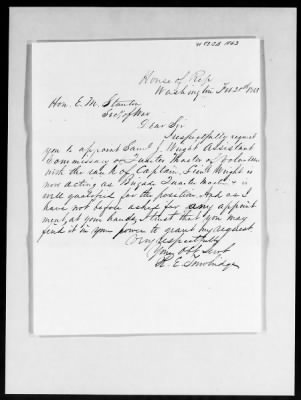 House of Rep
Washington Feb 20th 1863
Hon. E. M. Stanton
Sec. of War
Dear Sir
I respectfully request
you to appoint Saml J. Wright Assistant
Commissary or Quarter Master of Volunteers
with the rank of Captain. Lieut Wright is
now acting as Brigade Quarter Master & is
well qualified for the position. And as I
have not before asked for any appoint
ment at your hands, I trust that you may
find it in your power to grant my request
Very respectfully
Your Obt Servt
R. E. Trowbridge